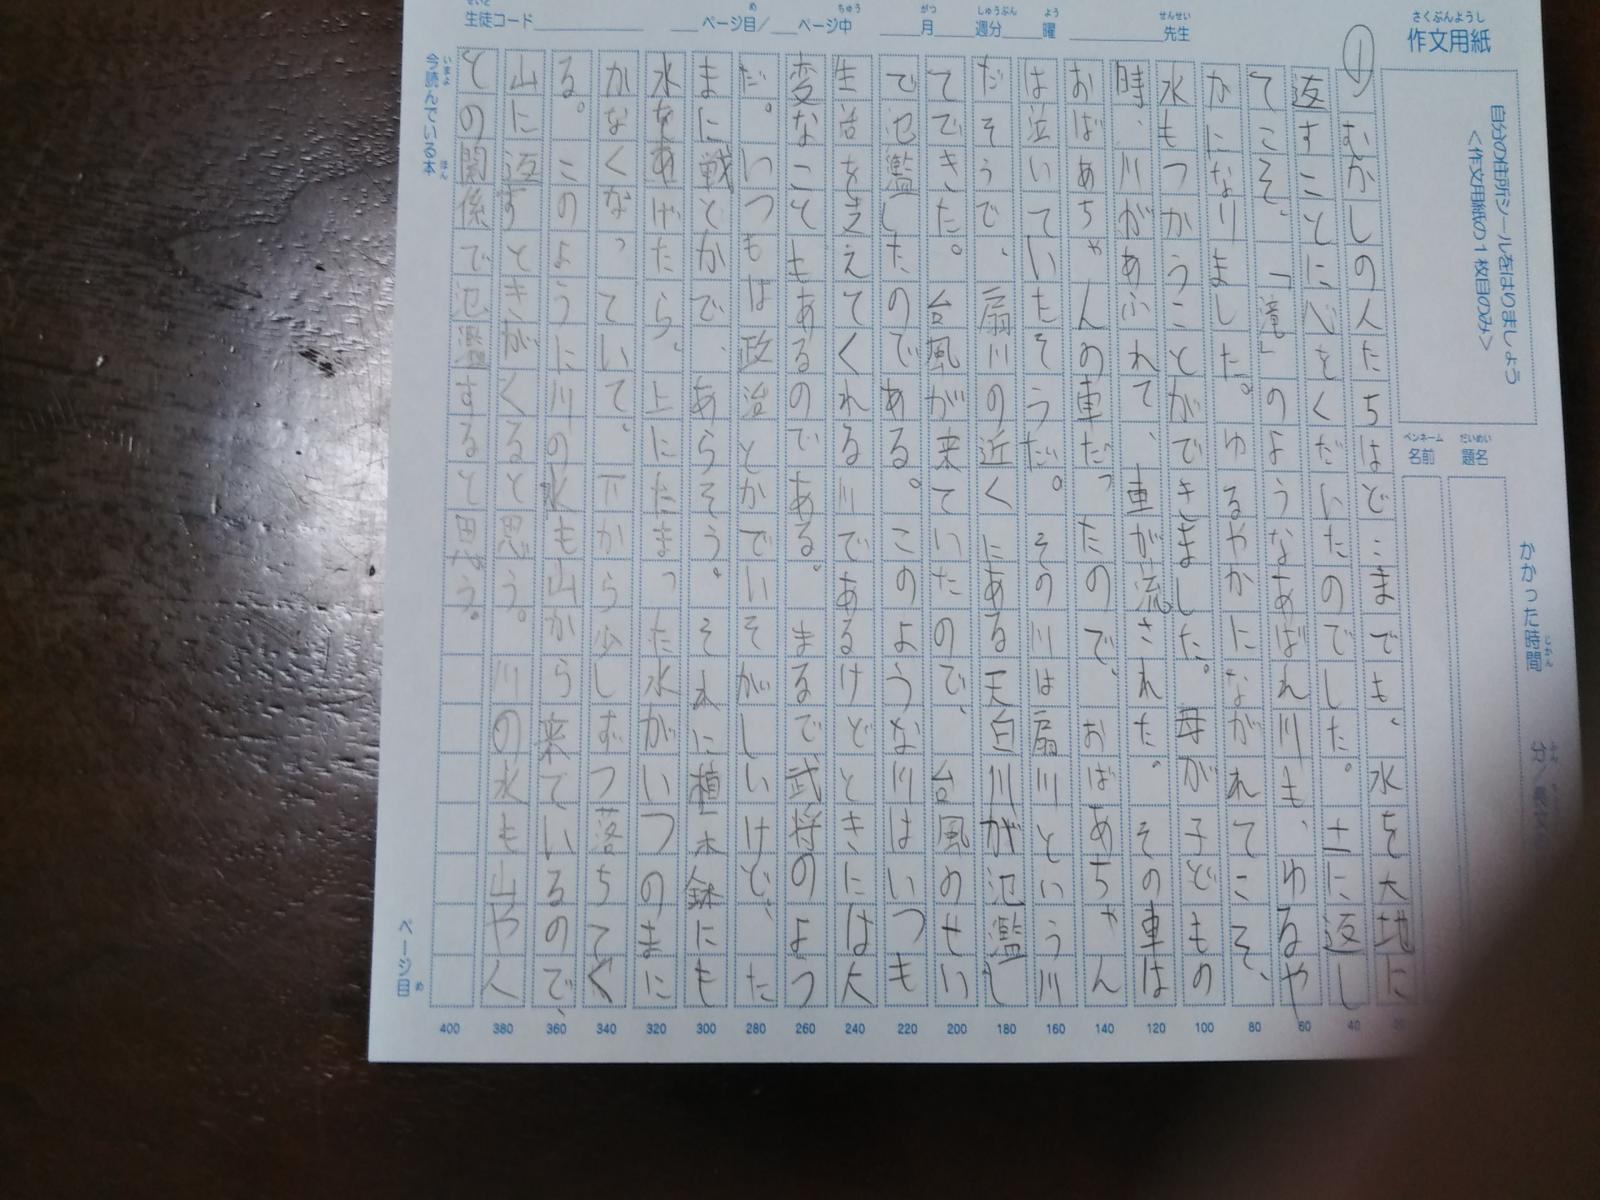 作文用紙
さくぶんようし
自分の住所シールをはりましょう
<作文用紙の1枚目のみ>
だいめい
題名
ペンネーム
名前
かかった時間
じかん
せいと
生徒コード
ページ目/
め
ページ中
ちゅう
月
がつ
週分
しゅうぶん
曜
よう
先生
せんせい
①
むかしの人たちはどこまでも、水を大地に
返すことに心をくだいたのでした。土に返し
てこそ、「滝」のようなあばれ川も、ゆるや
かになりました。ゆるやかにながれてこそ、
水もつかうことができました。母が子どもの
時、川があふれて、車が流された。その車は
おばあちゃんの車だったので、おばあちゃん
は泣いていたそうだ。その川は扇川という川
だそうで、扇川の近くにある天白川が氾濫し
てできた。台風が来ていたので、台風のせい
で氾濫したのである。このような川はいつも
生活を支えてくれる川であるけどときには大
変なこともあるのである。まるで武将のよう
だ。いつもは政治とかでいそがしいけど、た
まに戦とかで、あらそう。それに植木鉢にも
水をあげたら、上にたまった水がいつのまに
かなくなっていて、下から少しずつ落ちてく
る。このように川の水も山から来ているので、
山に返すときがくると思う。川の水も山や人
との関係で氾濫すると思う。
今読んでいる本
いまよ
ほん
ページ目
め
20
40
60
80
100
120
140
160
180
200
220
240
260
280
300
320
340
360
380
400